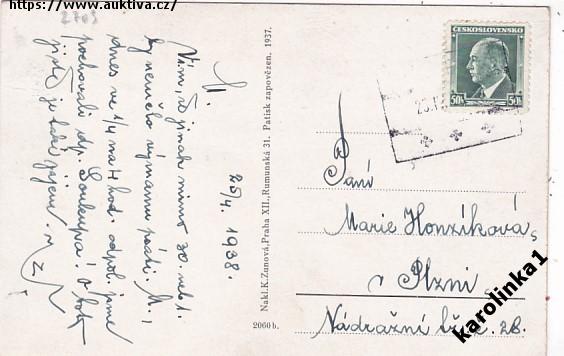 https://www.auktiva.cz/
2703
M.
25/4. 1938.
Vím, že jinak mimo 30. neb 1.
by nemělo významu psáti. M.,
dnes ve 1/4 na 4 hod. odpol. jsme
pochovali dp.
je
Nakl. K. Zenová, Praha XII., Rumunská 31. Patisk zapovězen. 1937.
2060 b.
ČESKOSLOVENSKO
50h 50h
Paní
Marie Honzíková,
v Plzni
Nádražní 26.
karolinka1